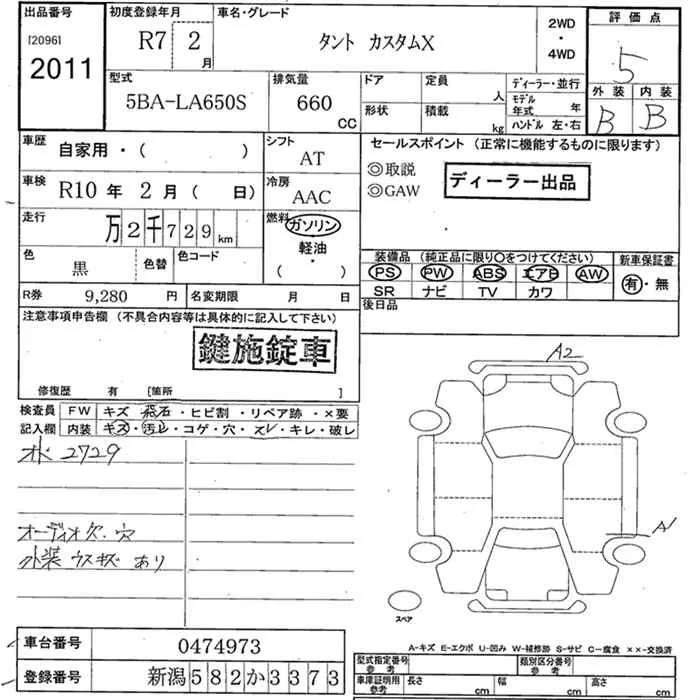 出品番号
[20961
2011
初度登録年月
R7 2
月
車名・グレード
タント カスタムX
2WD
・
4WD
評価点
5
外装 内装
B B
型式
5BA-LA650S
排気量
660
CC
ドア 定員
人
形状 積載
kg
ディーラー・並行
モデル
年式 年
ハンドル 左・右
車歴
自家用・( )
シフト
AT
車検
R10 年 2 月( 日)
冷房
AAC
走行
万 2 千 7 2 9 km
燃料
ガソリン
軽油
・
( )
色
黒
色替
色コード
R券 9,280 円
名変期限 月 日
セールスポイント (正常に機能するものに限ります)
◎取説
◎GAW
ディーラー出品
装備品 (純正品に限り○をつけてください)
新車保証書
PS PW ABS エアB AW
有・無
SR ナビ TV カワ
後日品
注意事項申告欄 (不具合内容等は具体的に記入して下さい)
鍵施錠車
修復歴 有 [箇所 ]
検査員 FW キズ 飛石・ヒビ割・リペア跡・×要
記入欄 内装 キズ・汚レ・コゲ・穴・スレ・キレ・破レ
オド 2729
オーディオ欠.穴
外装 ウスキズ あり
A2
A1
スペア
車台番号 0474973
登録番号 新潟582か3373
A-キズ E-エクボ U-凹み W-補修跡 S-サビ C-腐食 ××-交換済
型式指定番号
参考
類別区分番号
参考
車庫証明用
参考
長さ cm
幅 cm
高さ cm